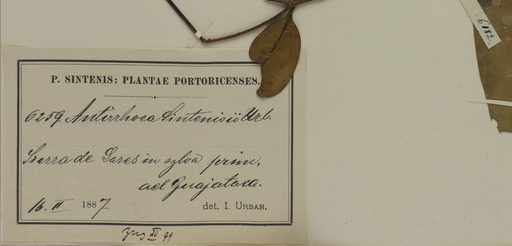 P. SINTENIS: PLANTAE PORTORICENSES.
6259. Antirrhoea Sintenisii Urb.
Sierra de Lares in sylva prim.
ad Guajataca.
16. II 1887 det. I. URBAN.
6182.